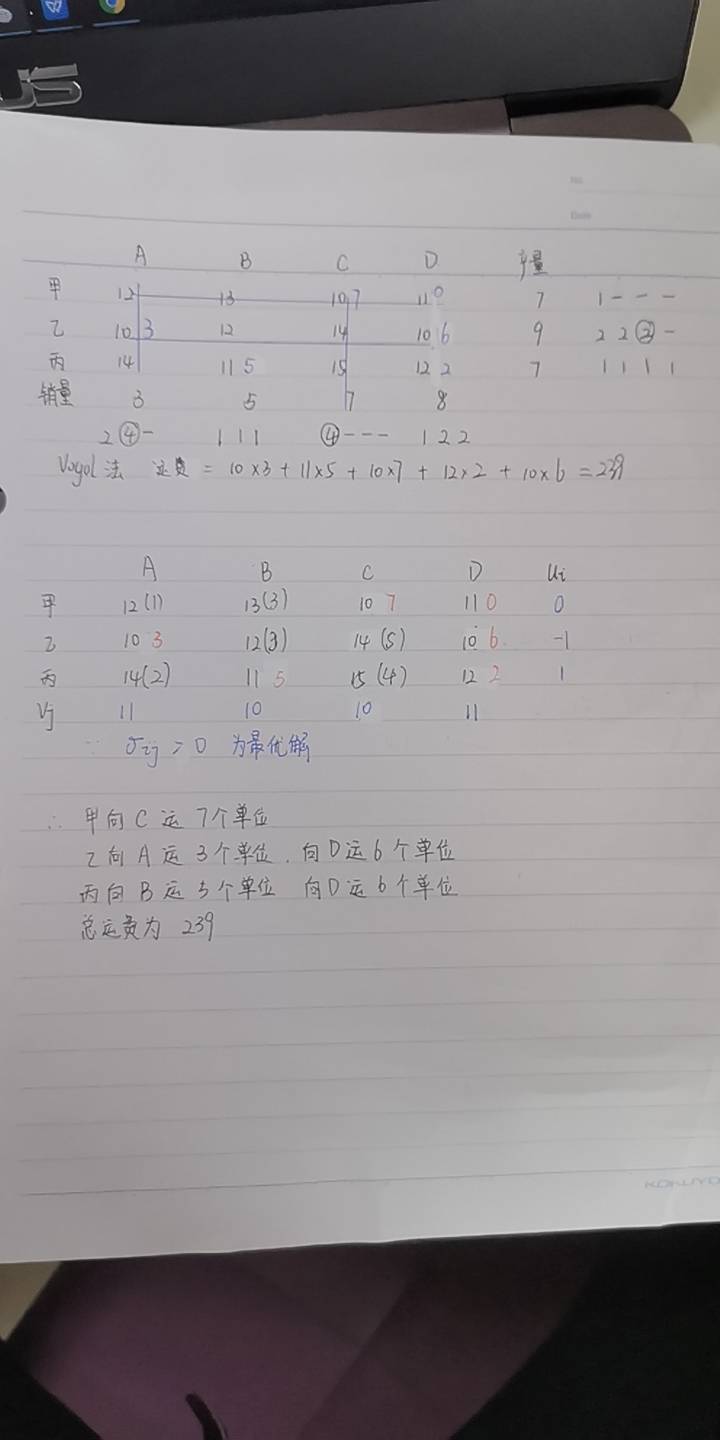 US
No.
Date
A B C D 产量
甲 12 13 10 7 11 0 7 1 - - -
乙 10 3 12 14 10 6 9 2 2 ② -
丙 14 11 5 15 12 2 7 1 1 1 1
销量 3 5 7 8
2 ④ - 1 1 1 ④ - - - 1 2 2
Vogol法 运费 = 10×3 + 11×5 + 10×7 + 12×2 + 10×6 = 239
A B C D Ui
甲 12(1) 13(3) 10 7 11 0 0
乙 10 3 12(3) 14(5) 10 6 -1
丙 14(2) 11 5 15(4) 12 2 1
Vj 11 10 10 11
∵ σij > 0 为最优解
∴ 甲向C运7个单位
乙向A运3个单位.向D运6个单位
丙向B运5个单位 向D运6个单位
总运费为 239
KOKUYO